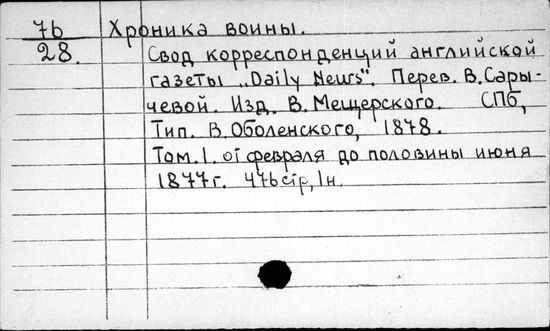 76 Хроника воины.
28. Свод корреспонденций английской
газеты „Daily News". Перев. В. Сары-
чевой. Изд. В. Мещерского. СПб,
Тип. В. Оболенского, 1878.
Том. 1. от февраля до половины июня
1877г. 476 стр, 1н.